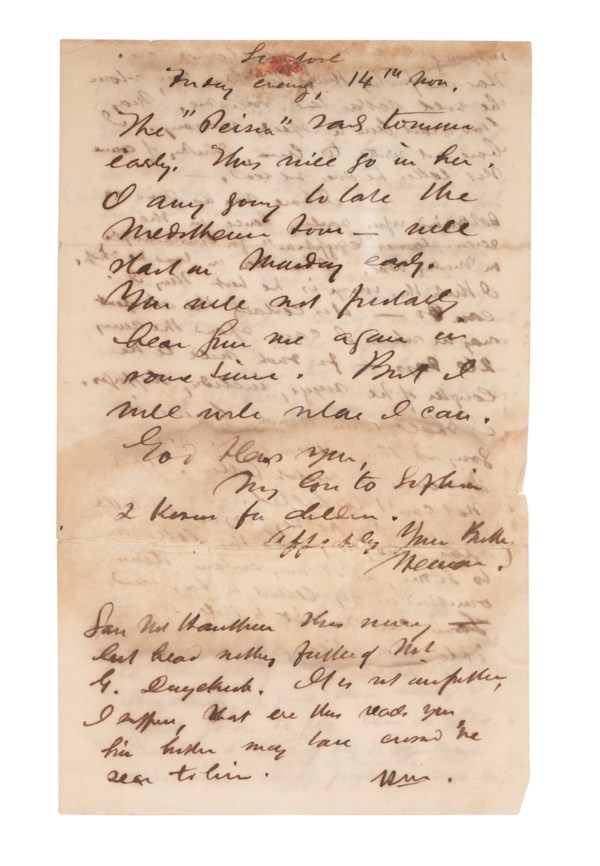 Liverpool
Friday evening, 14th Nov.
The "Persia" sails tomorrow
early. This will go in her.
I am going to take the
Mediterranean tour — will
start on Monday early.
You will not probably
hear from me again in
some time. But I
will write when I can.
God bless you,
My love to Sophia
& kisses for children.
Affectly Your Brother
Herman.
Saw Mr Hawthorne this morning —
but heard nothing further of Mr
G. Duyckinck. It is not improbable,
I suppose, that ere this reaches you,
his brother may have crossed the
sea to him. H.M.